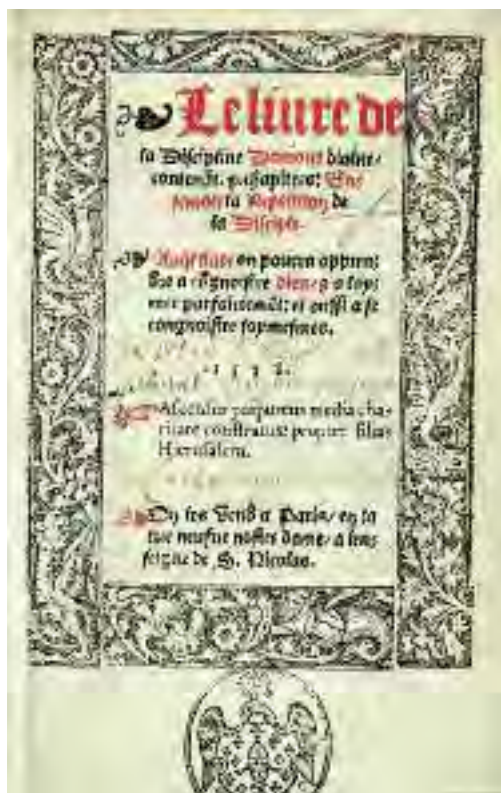 Le liure de
la Discipline Damour diuine/
la Repetition de
la Disciple.
en pourra appren
dre a cõgnoistre dieu, & a lay
mer parfaictemẽt: et aussi a se
congnoistre soymesmes.
Ascensus purpureus media cha-
ritate constratus: propter filias
Hierusalem.
On les vend a Paris/ en la
rue neufue nostre dame/ a lens
seigne de S. Nicolas.